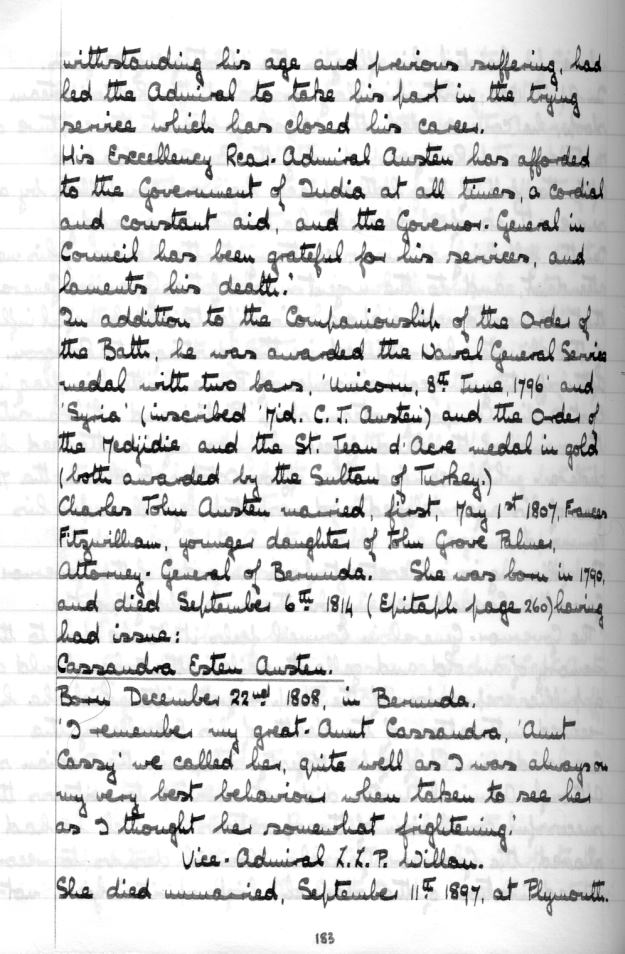 withstanding his age and previous suffering, had
led the Admiral to take his part in the trying
service which has closed his career.
His Excellency Rear-Admiral Austen has afforded
to the Government of India at all times, a cordial
and constant aid, and the Governor-General in
Council has been grateful for his services, and
laments his death.'
In addition to the Companionship of the Order of
the Bath, he was awarded the Naval General Service
medal with two bars, 'Unicorn, 8th June, 1796' and
'Syria' (inscribed 'Mid. C. J. Austen) and the Order of
the Medjidie and the St. Jean d'Acre medal in gold
(both awarded by the Sultan of Turkey.)
Charles John Austen married, first, May 1st 1807, Frances
Fitzwilliam, younger daughter of John Grove Palmer,
Attorney-General of Bermuda. She was born in 1790,
and died September 6th 1814 (Epitaph page 260) having
had issue:
Cassandra Esten Austen.
Born December 22nd 1808, in Bermuda.
'I remember my great-Aunt Cassandra, 'Aunt
Cassy' we called her, quite well as I was always on
my very best behaviour when taken to see her
as I thought her somewhat frightening.'
Vice-Admiral L.L.P. Willan.
She died unmarried, September 11th 1897, at Plymouth.
183